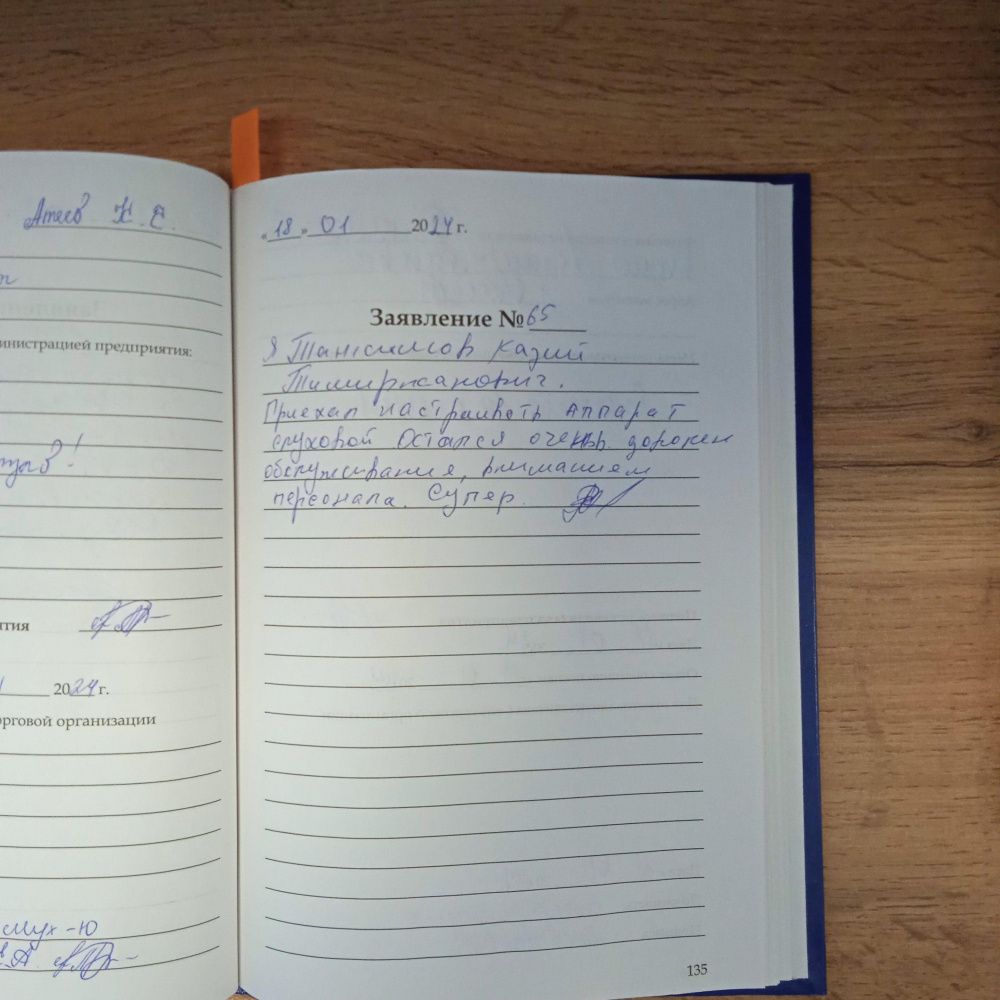 Атеев К. Е.
министрацией предприятия:
ятия
2024 г.
орговой организации
Мух-Ю
«18» 01 2024 г.
Заявление № 65
Я Казий
Тимиржанович.
Приехал настраивать аппарат
слуховой Остался очень
обслуживание, вниманием
персонала. Супер.
135